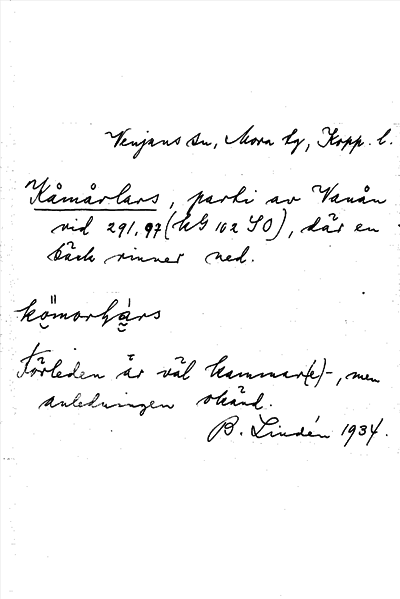 Venjans sn, Mora tg, Kopp. l.
Kåmårlars, parti av Vanån
vid 291,97 (kG 102 SO), där en
bäck rinner ned.
Förleden är väl kammar(e)-, men
anledningen okänd.
B. Lindén 1934.